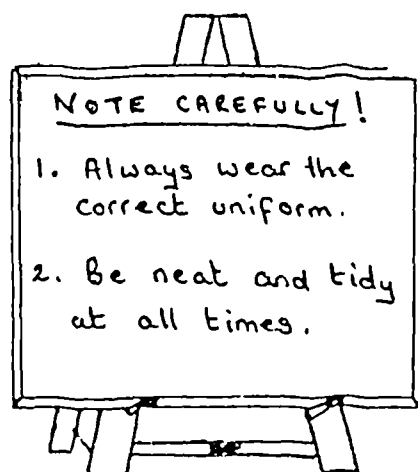 NOTE CAREFULLY!
1. Always wear the
correct uniform.
2. Be neat and tidy
at all times.